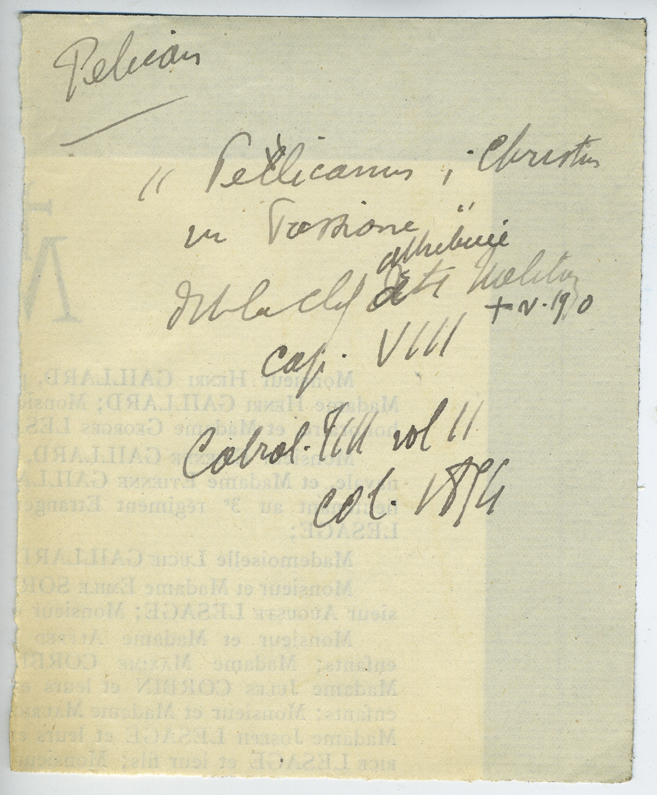 Pelican
" Pellicanus ; Christus
in Passione "
attribuée
de la clef de St Meliton
+ v. 190
cap. VIII
Cabrol. III vol II
col. 1874
Monsieur Henri GAILLARD,
Madame Henri GAILLARD; Monsi
et Madame Georges LES
GAILLARD,
navale, et Madame Etienne GAILLA
au 3e régiment Etrange
LESAGE;
Mademoiselle Lucie GAILLARD
Monsieur et Madame Emile SOR
sieur Auguste LESAGE; Monsieur
Monsieur et Madame Alfred
enfants; Madame Maxime CORB
Madame Jules CORBIN et leurs
enfants; Monsieur et Madame
Madame Joseph LESAGE et leurs
rice LESAGE et leur fils; Monsieur